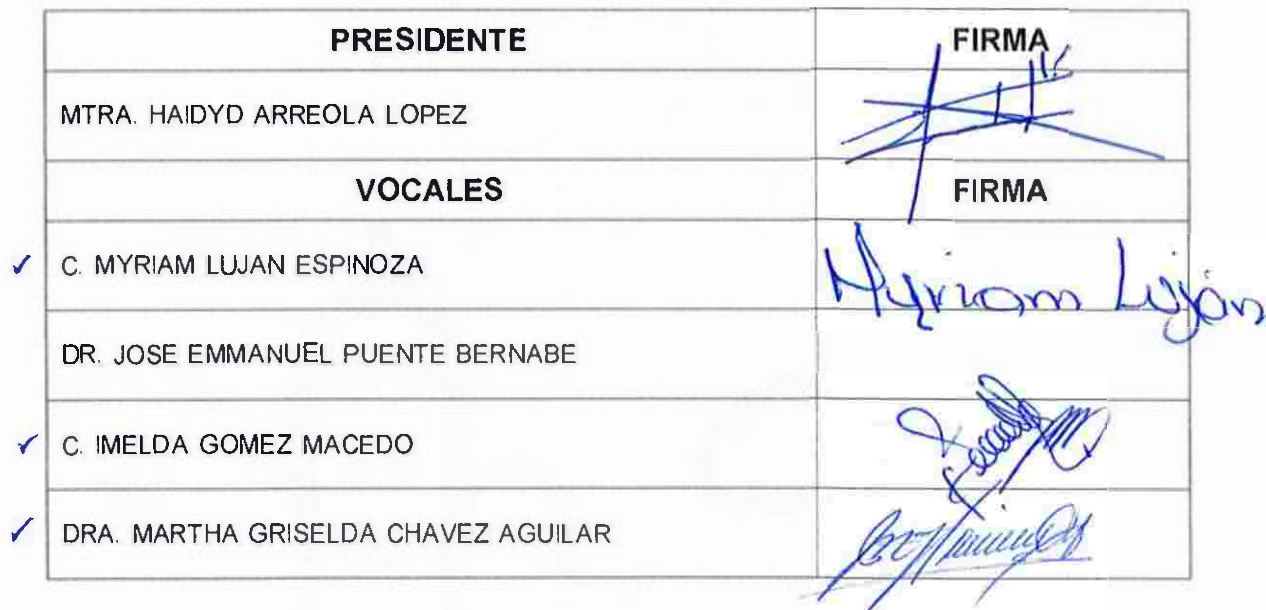 PRESIDENTE FIRMA
MTRA. HAIDYD ARREOLA LOPEZ
VOCALES FIRMA
✓ C. MYRIAM LUJAN ESPINOZA Myriam Luján
DR. JOSE EMMANUEL PUENTE BERNABE
✓ C. IMELDA GOMEZ MACEDO
✓ DRA. MARTHA GRISELDA CHAVEZ AGUILAR